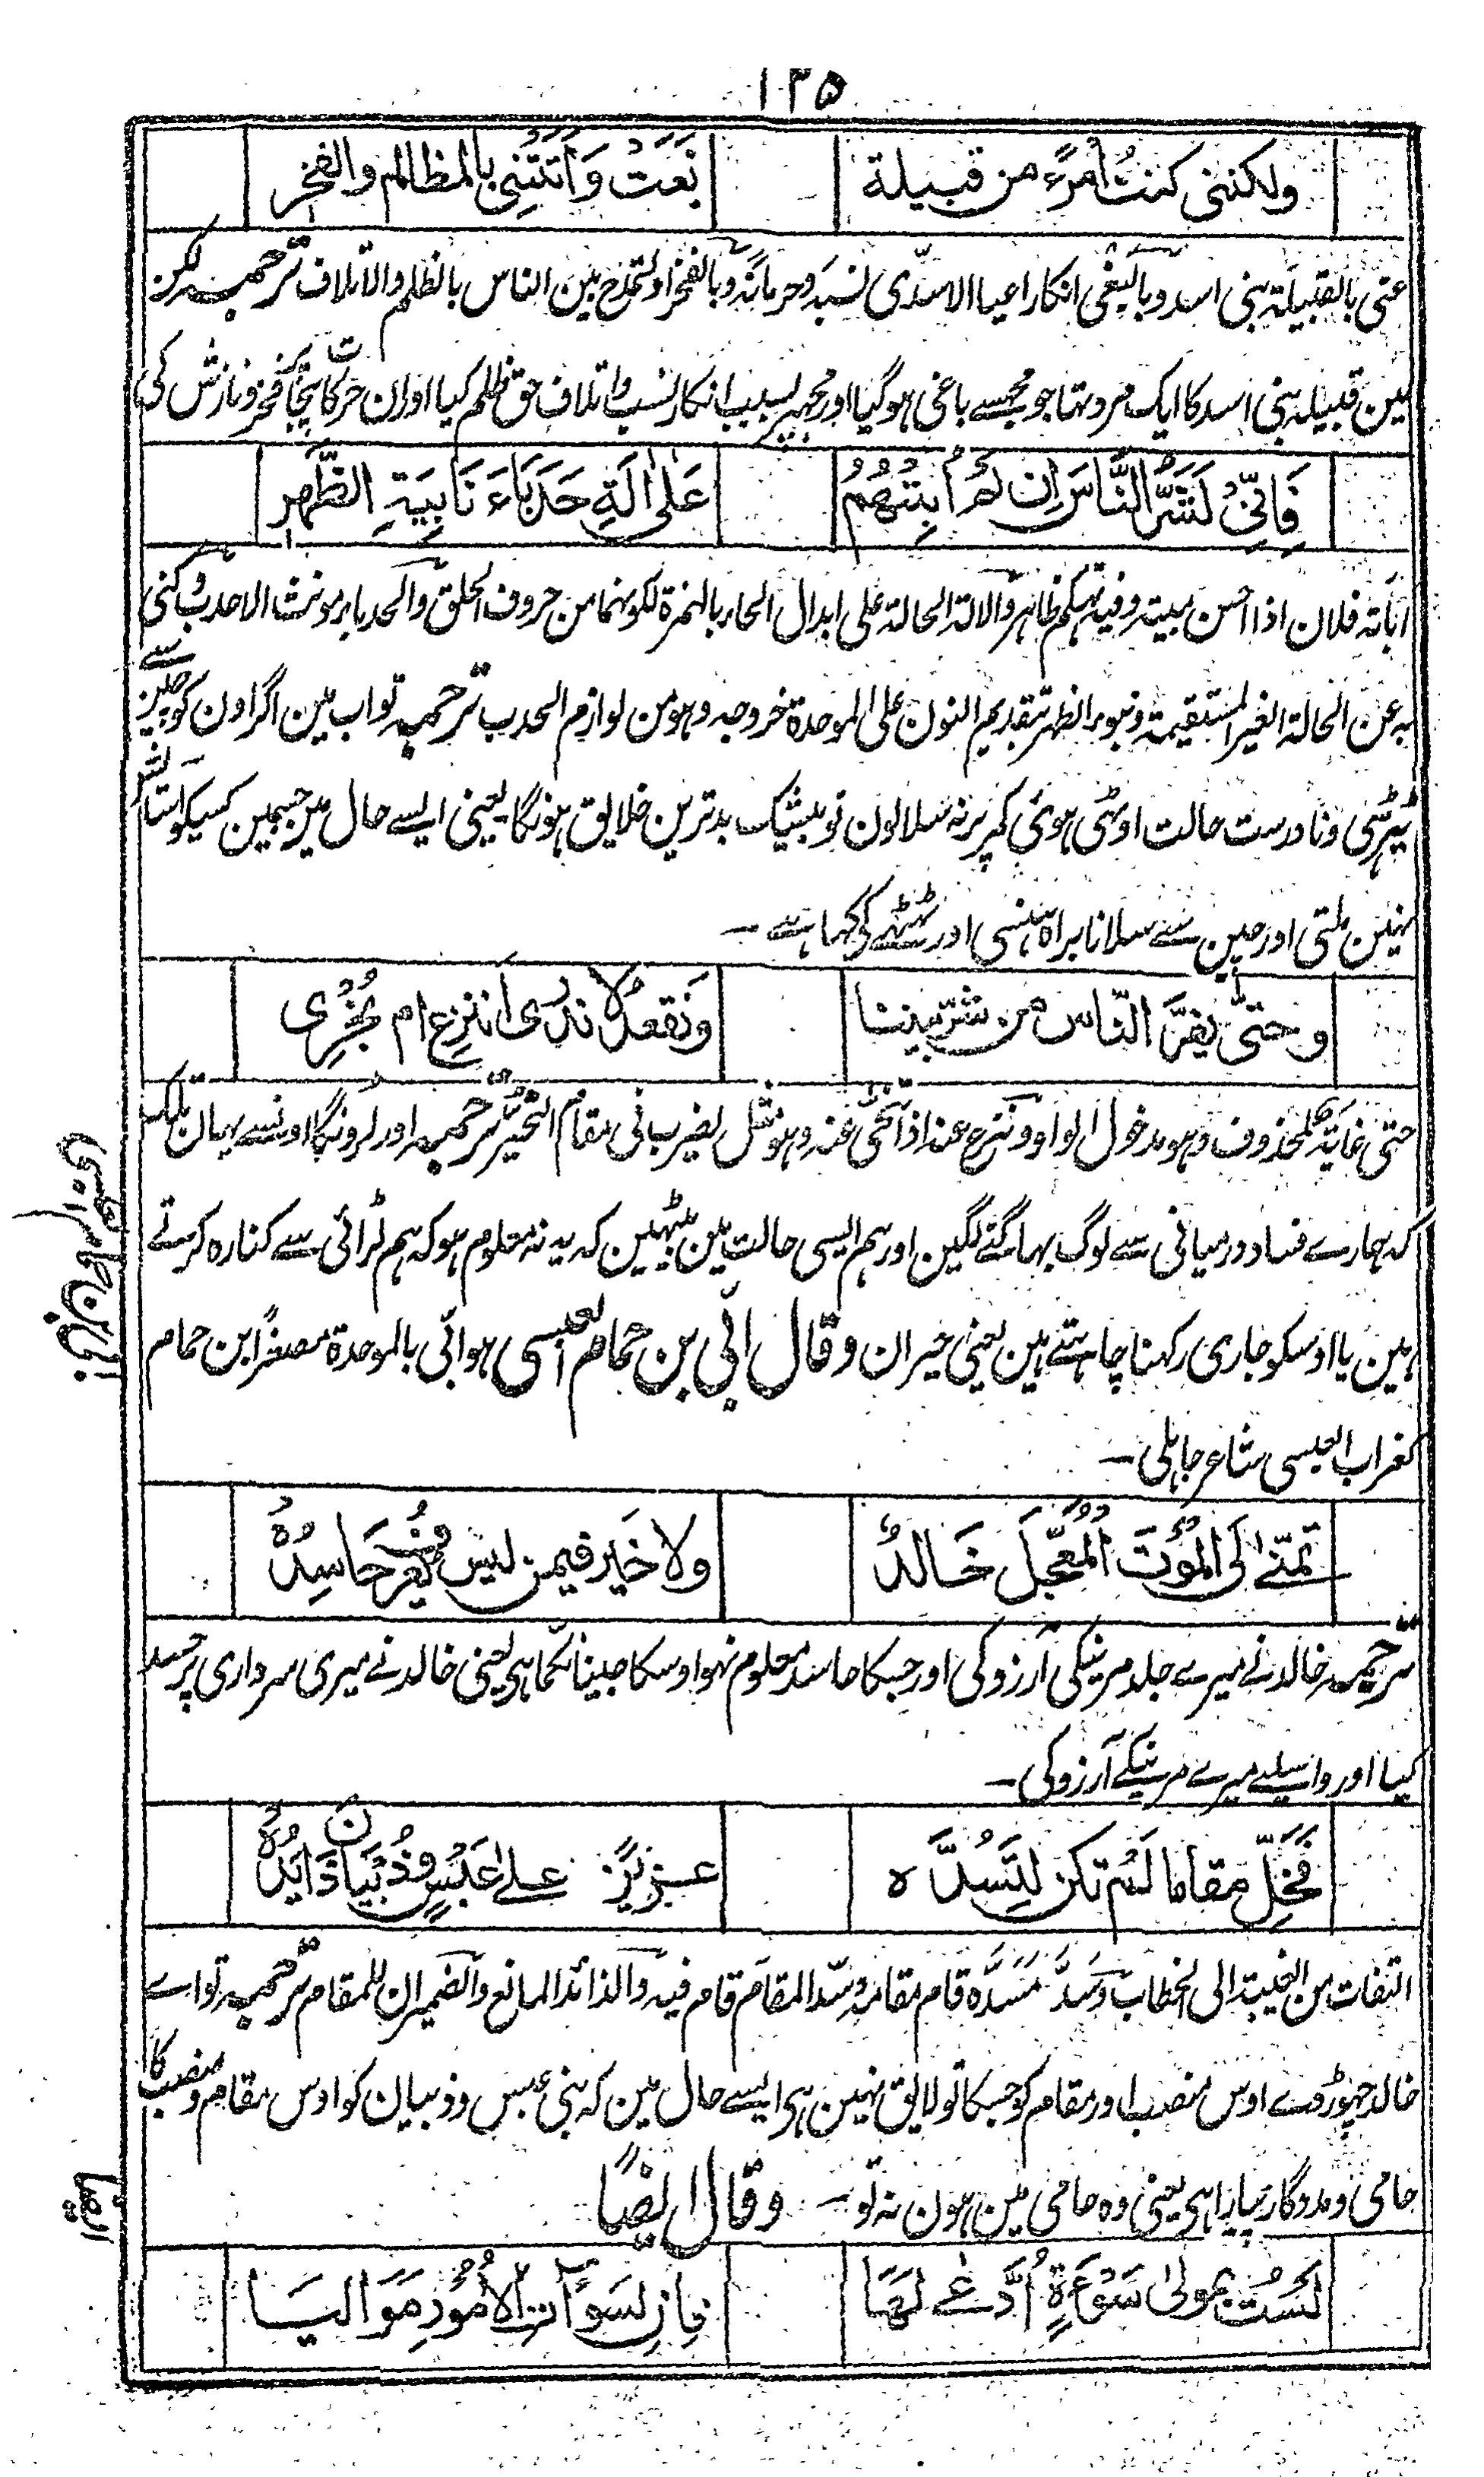 ۱۳۵
ولكننى كنتُ امرءً من قبيلة بَغَتْ وَاَتَتْنِى بالمظالم والفخر
عنى بالقبيلة بنى اسد وبالبغى انكار اعيا الاسدى نسبَه وحرمانَه وبالفخر التمدح بين الناس بالظلم والاتلاف ترجمہ لیکن
مین قبیلہ بنی اسد کا ایک مرد تھا جو مجھسے باغی ہوگیا اور مجھپر بسبب انکار نسب و اتلاف حق ظلم کیا اور ان حرکات بیجا پر فخر و نازش کی
فَاِنّىْ لَشَرُّ النَّاسِ اِن لم اُبِتْهُمُ عَلىٰ اٰلَةٍ حَدْبَاءَ نَابِيَةِ الظَّهرِ
اباته فلان اذا احسن مبيته وفيه تهكم ظاهر والالة الحالة على ابدال الحاء بالهمزة لكونهما من حروف الحلق والحدباء مونث الاحدب وكنى
به عن الحالة الغير المستقيمة ونبوء الظهر بتقديم النون على الموحدة خروجه وهو من لوازم الحدب ترجمہ تو اب مین اگر اون کو چین سے
ٹیڑھی و نادرست حالت اوٹھی ہوئی کمر پر نہ سلاؤن تو بیشک بدترین خلایق ہونگا یعنی ایسے حال مین جسمین کسیکو استراحت
نہین ملتی اور چین سے سلانا براہ ہنسی اور ٹھٹھے کے کہا ہے ۔
وحتىّٰ يفرَّ النّاس من شرّ بيننا وَنَقعدُ لا ندرى اَننزِع ام نُجْرِى
حتى غاية لمحذوف وهو مدخول الواو ونزع عنه اذا تنحى عنه وهو مثل يضرب فى مقام التحير ترجمہ اور لڑونگا اونسے یہان تلک
کہ ہمارے فساد درمیانی سے لوگ بھاگنے لگین اور ہم ایسی حالت مین بیٹھین کہ یہ نہ معلوم ہو کہ ہم لڑائی سے کنارہ کرتے
ہین یا اوسکو جاری رکھنا چاہتے ہین یعنی حیران وقال اُبَىّ بن حمام العبسى هو ابىّ بالموحدة مصغرًا ابن حمام
كغراب العبسى شاعر جاهلى ۔
ابی بن حمام العبسی
تمنّىٰ لِىَ المَوْتَ المُعَجَّلَ خَالدٌ ولا خَيْر فيمن ليس يُعْرَف حَاسِدُهْ
ترجمہ خالد نے میرے جلد مرنیکی آرزو کی اور جسکا حاسد معلوم نہو اوسکا جینا نکما ہی یعنی خالد نے میری سرداری پر حسد
کیا اور واسطے میرے مرنیکے آرزو کی ۔
فَخَلِّ مَقامًا لَم تكن لِتَسُدَّه عزيزٌ علىٰ عَبْسٍ وذُبْيَانَ ذَايِدُهْ
التفات من الغيبة الى الخطاب وسَدَّ مَسَدَّه قام مقامه وسدّ المقام قام فيه والذائد المانع والضميران للمقام ترجمہ تو اے
خالد چھوڑ دے اوس منصب اور مقام کو جسکا تو لایق نہین ہی ایسے حال مین کہ بنی عبس و ذبیان کو اوس مقام و منصب کا
حامی و مددگار پیارا ہی یعنی وہ حامی مین ہون نہ تو ۔ وقال ايضًا
ايضا
لَستُ بمولىٰ سَوْءَةٍ اُدَّعىٰ لهَا فاِن لسَوءَاتِ الاُمُورِ مَوَاليَا